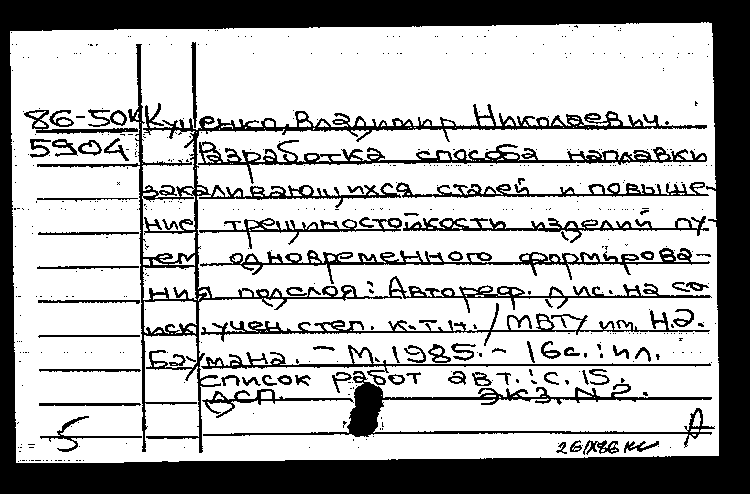 86-50к Кущенко, Владимир Николаевич.
5904 Разработка способа наплавки
закаливающихся сталей и повыше-
ние трещиностойкости изделий пу-
тем одновременного формирова-
ния подслоя: Автореф. дис. на со
иск. учен. степ. к.т.н. / МВТУ им. Н.Э.
Баумана. - М., 1985. - 16 с. : ил.
Список работ авт.: с. 15.
ДСП. ЭКЗ. N 2.
5 Д
26IX86